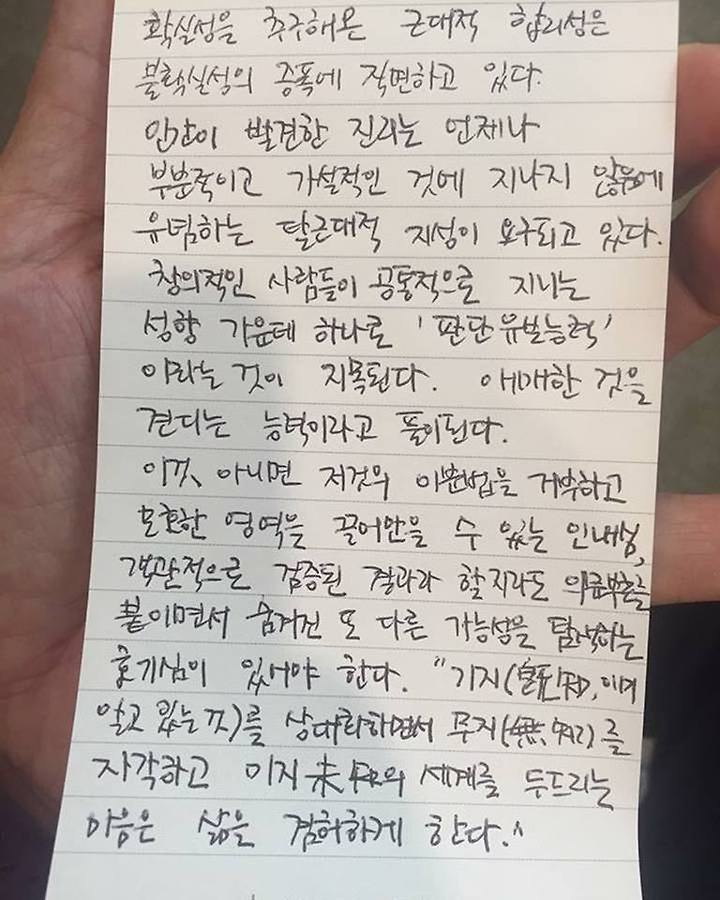 확실성을 추구해온 근대적 합리성은
불확실성의 증폭에 직면하고 있다.
인간이 발견한 진리는 언제나
부분적이고 가설적인 것에 지나지 않음에
유념하는 탈근대적 지성이 요구되고 있다.
창의적인 사람들이 공통적으로 지니는
성향 가운데 하나로 '판단유보능력'
이라는 것이 지목된다. 애매한 것을
견디는 능력이라고 풀이된다.
이것 아니면 저것의 이분법을 거부하고
모호한 영역을 끌어안을 수 있는 인내심,
객관적으로 검증된 결과라 할지라도 의문부호를
붙이면서 숨겨진 또 다른 가능성을 탐색하는
호기심이 있어야 한다. "기지(旣知, 이미
알고 있는 것)를 상대화하면서 무지(無知)를
자각하고 미지未知의 세계를 두드리는
마음은 삶을 겸허하게 한다."